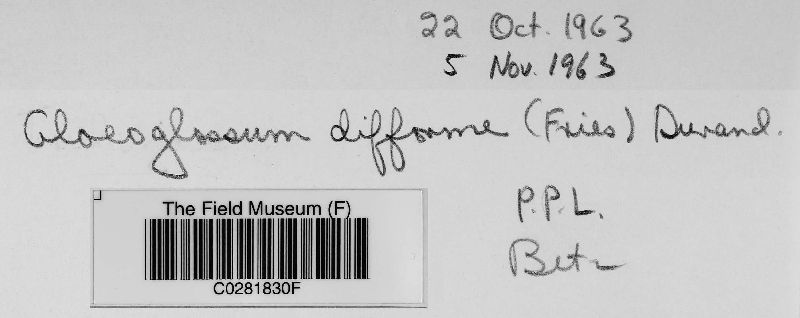 22 Oct. 1963
5 Nov. 1963
Gloeoglossum difforme (Fries) Durand.
P.P.L.
Betz
The Field Museum (F)
C0281830F